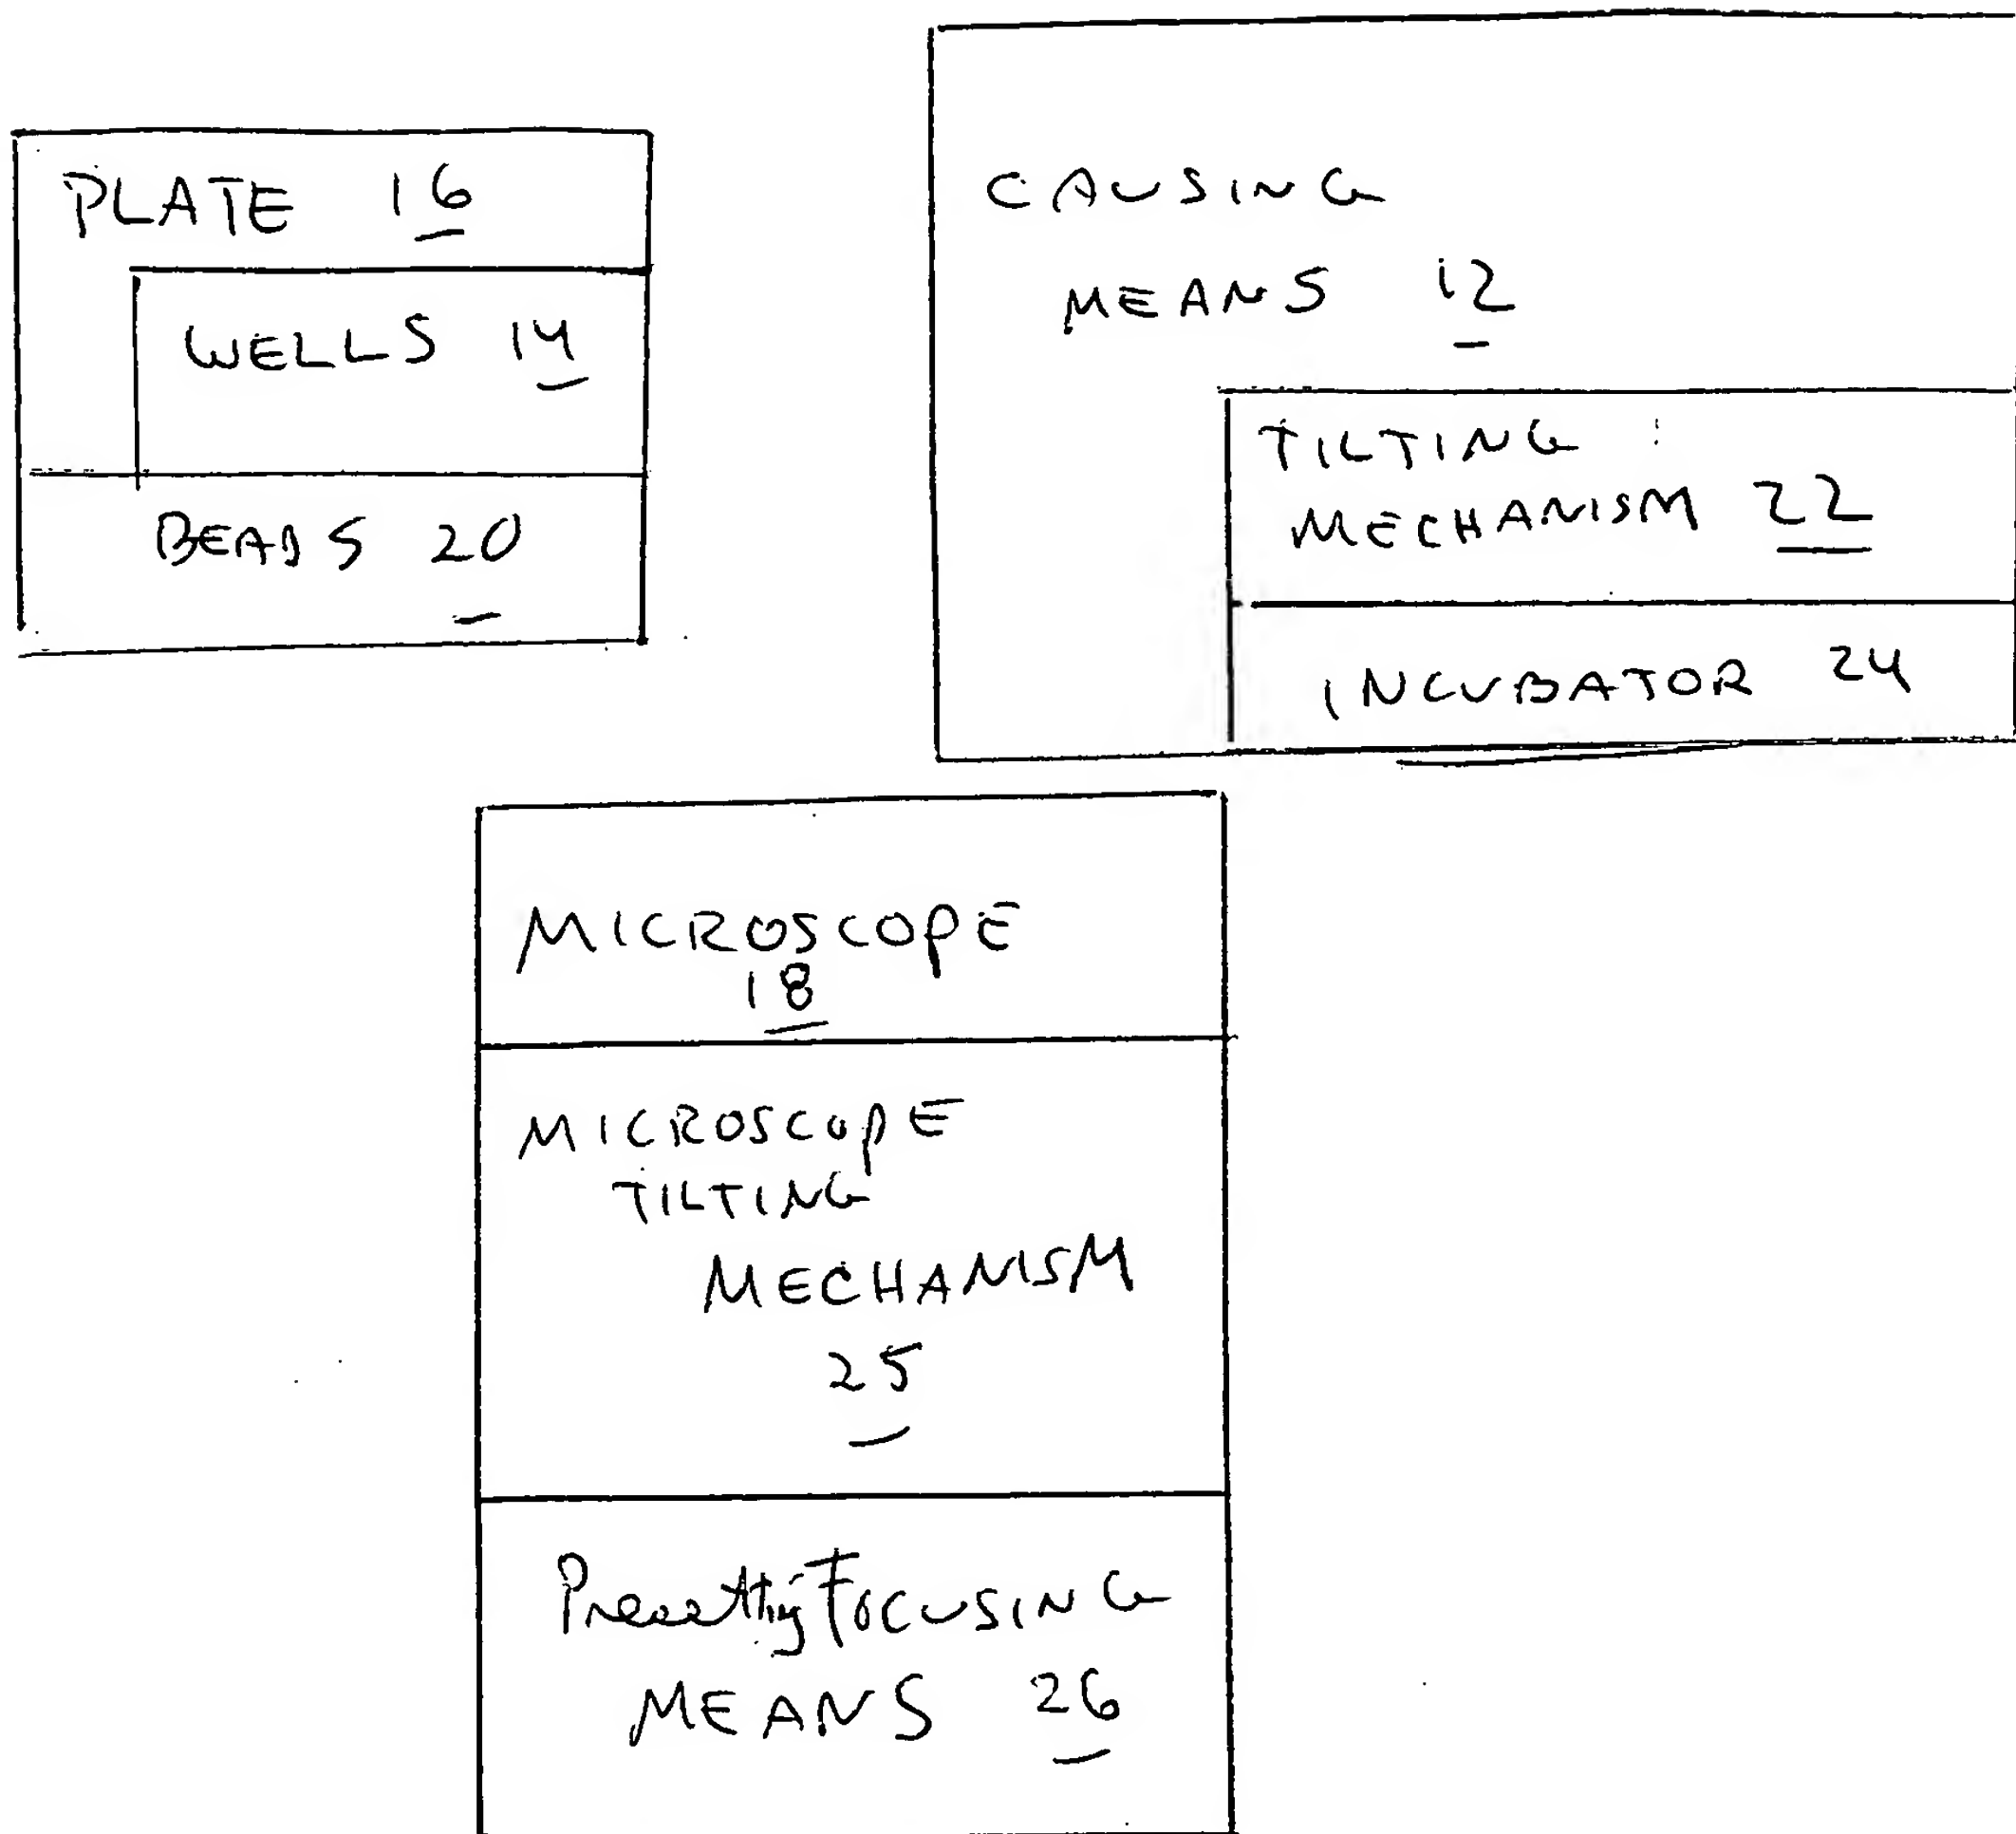 PLATE 16
WELLS 14
BEADS 20
CAUSING
MEANS 12
TILTING
MECHANISM 22
INCUBATOR 24
MICROSCOPE
18
MICROSCOPE
TILTING
MECHANISM
25
FOCUSING
MEANS 26